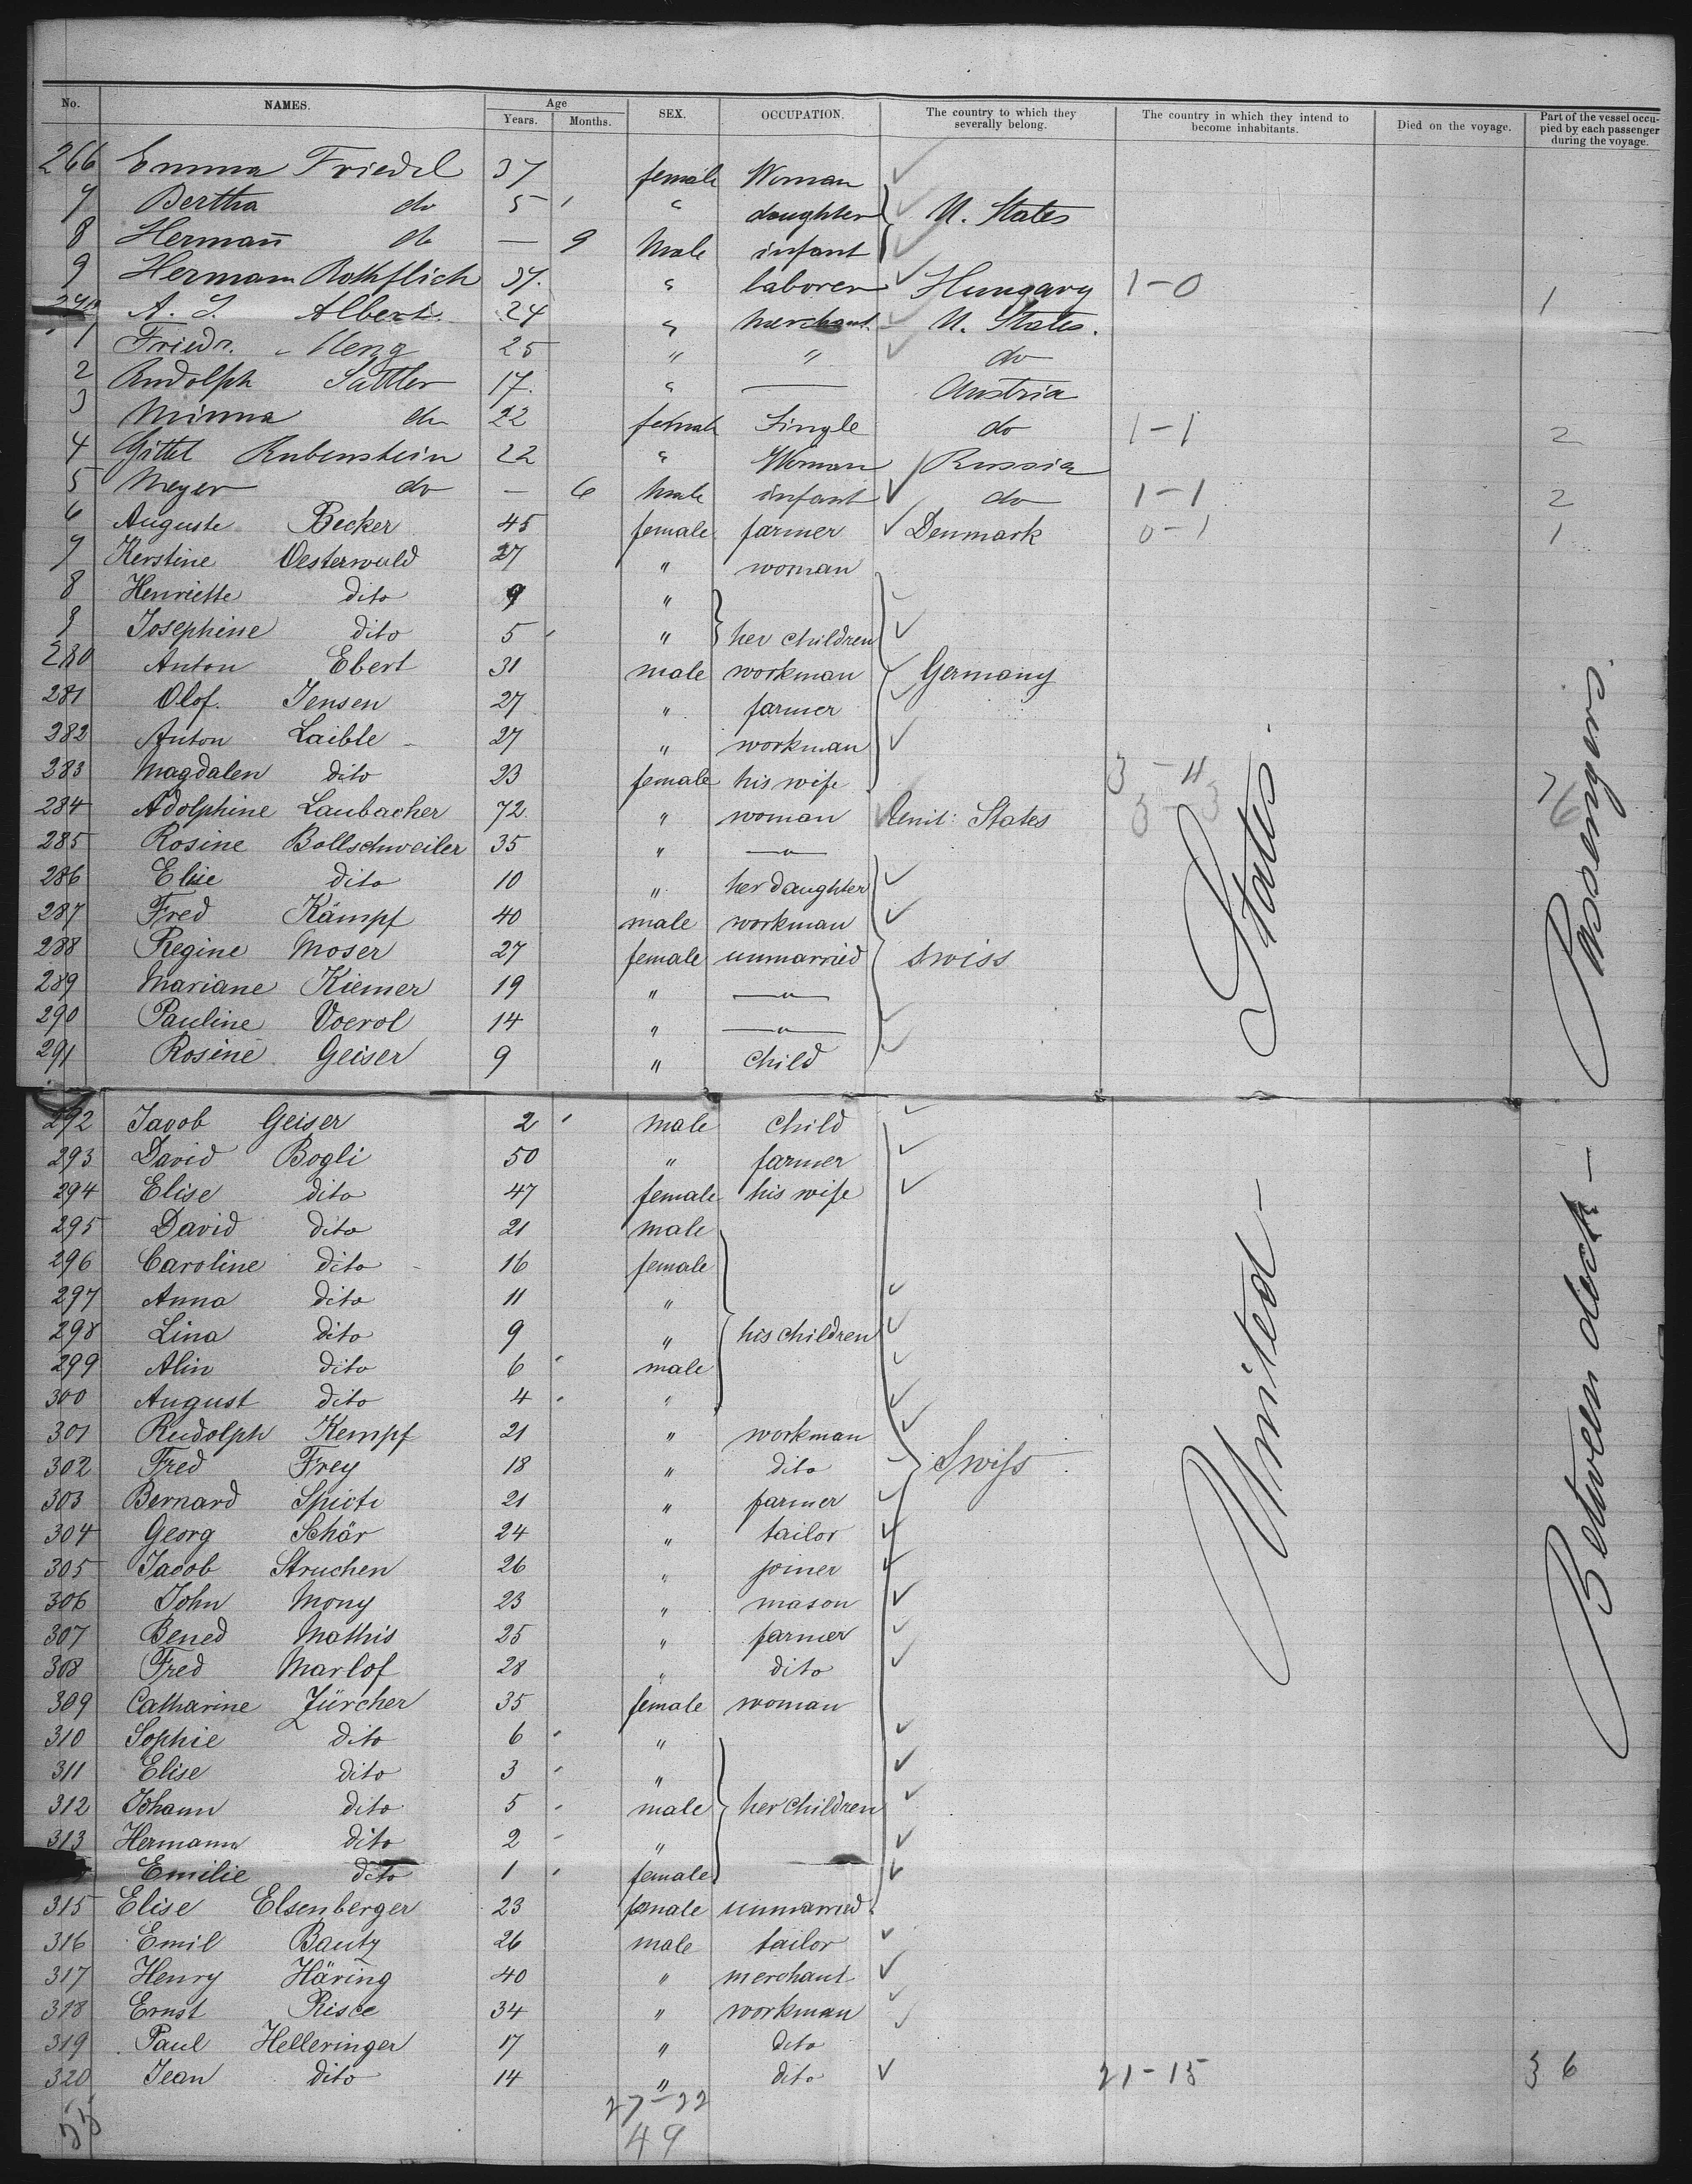 No. NAMES. Age Years. Months. SEX. OCCUPATION. The country to which they severally belong. The country in which they intend to become inhabitants. Died on the voyage. Part of the vessel occupied by each passenger during the voyage.
266 Emma Friedel 37 female Woman
7 Bertha do 5 " daughter U. States
8 Hermañ do — 9 Male infant
9 Hermann Rothflich 37. " laborer Hungary 1-0 1
270 A. S. Albert. 24 " Merchant U. States.
1 Friedr. Meng 25 " " do
2 Rudolph Sattler 17. " — Austria
3 Minna do 22 female Single do 1-1 2
4 Gittel Rubenstein 22 " Woman Russia
5 Meyer do — 6 Male infant do 1-1 2
6 Auguste Becker 45 female farmer Denmark 0-1 1
7 Kerstine Oesterwuld 27 " woman
8 Henriette dito 9 "
9 Josephine dito 5 " her children
280 Anton Ebert 31 male workman Germany
281 Olof. Jensen 27 " farmer
282 Anton Laible 27 " workman
283 Magdalen dito 23 female his wife 3-4 7
284 Adolphine Laubacher 72 " woman Unit: States 3-3 6
285 Rosine Bollschweiler 35 " —"—
286 Elise dito 10 " her daughter
287 Fred Kämpf 40 male workman
288 Regine Moser 27 female unmarried swiss
289 Mariane Kiemer 19 " —"—
290 Pauline Voerol 14 " —"—
291 Rosine Geiser 9 " child
292 Jacob Geiser 2 male child
293 David Bogli 50 " farmer
294 Elise dito 47 female his wife
295 David dito 21 male
296 Caroline dito 16 female
297 Anna dito 11 "
298 Lina dito 9 " his children
299 Alin dito 6 male
300 August dito 4 "
301 Rudolph Kempf 21 " workman
302 Fred Frey 18 " dito Swiss
303 Bernard Spicti 21 " farmer
304 Georg Schär 24 " tailor
305 Jacob Struchen 26 " joiner
306 John Mony 23 " mason
307 Bened Mathis 25 " farmer
308 Fred Marlof 28 " dito
309 Catharine Zürcher 35 female woman
310 Sophie dito 6 "
311 Elise dito 3 "
312 Johann dito 5 male her children
313 Hermann dito 2 "
Emilie dito 1 female
315 Elise Elsenberger 23 female unmarried
316 Emil Bauty 26 male tailor
317 Henry Häring 40 " merchant
318 Ernst Risce 34 " workman
319 Paul Helleringer 17 " dito
320 Jean dito 14 " dito 21-15 36
55 27-22
49
United States.
Between deck - Passengers.